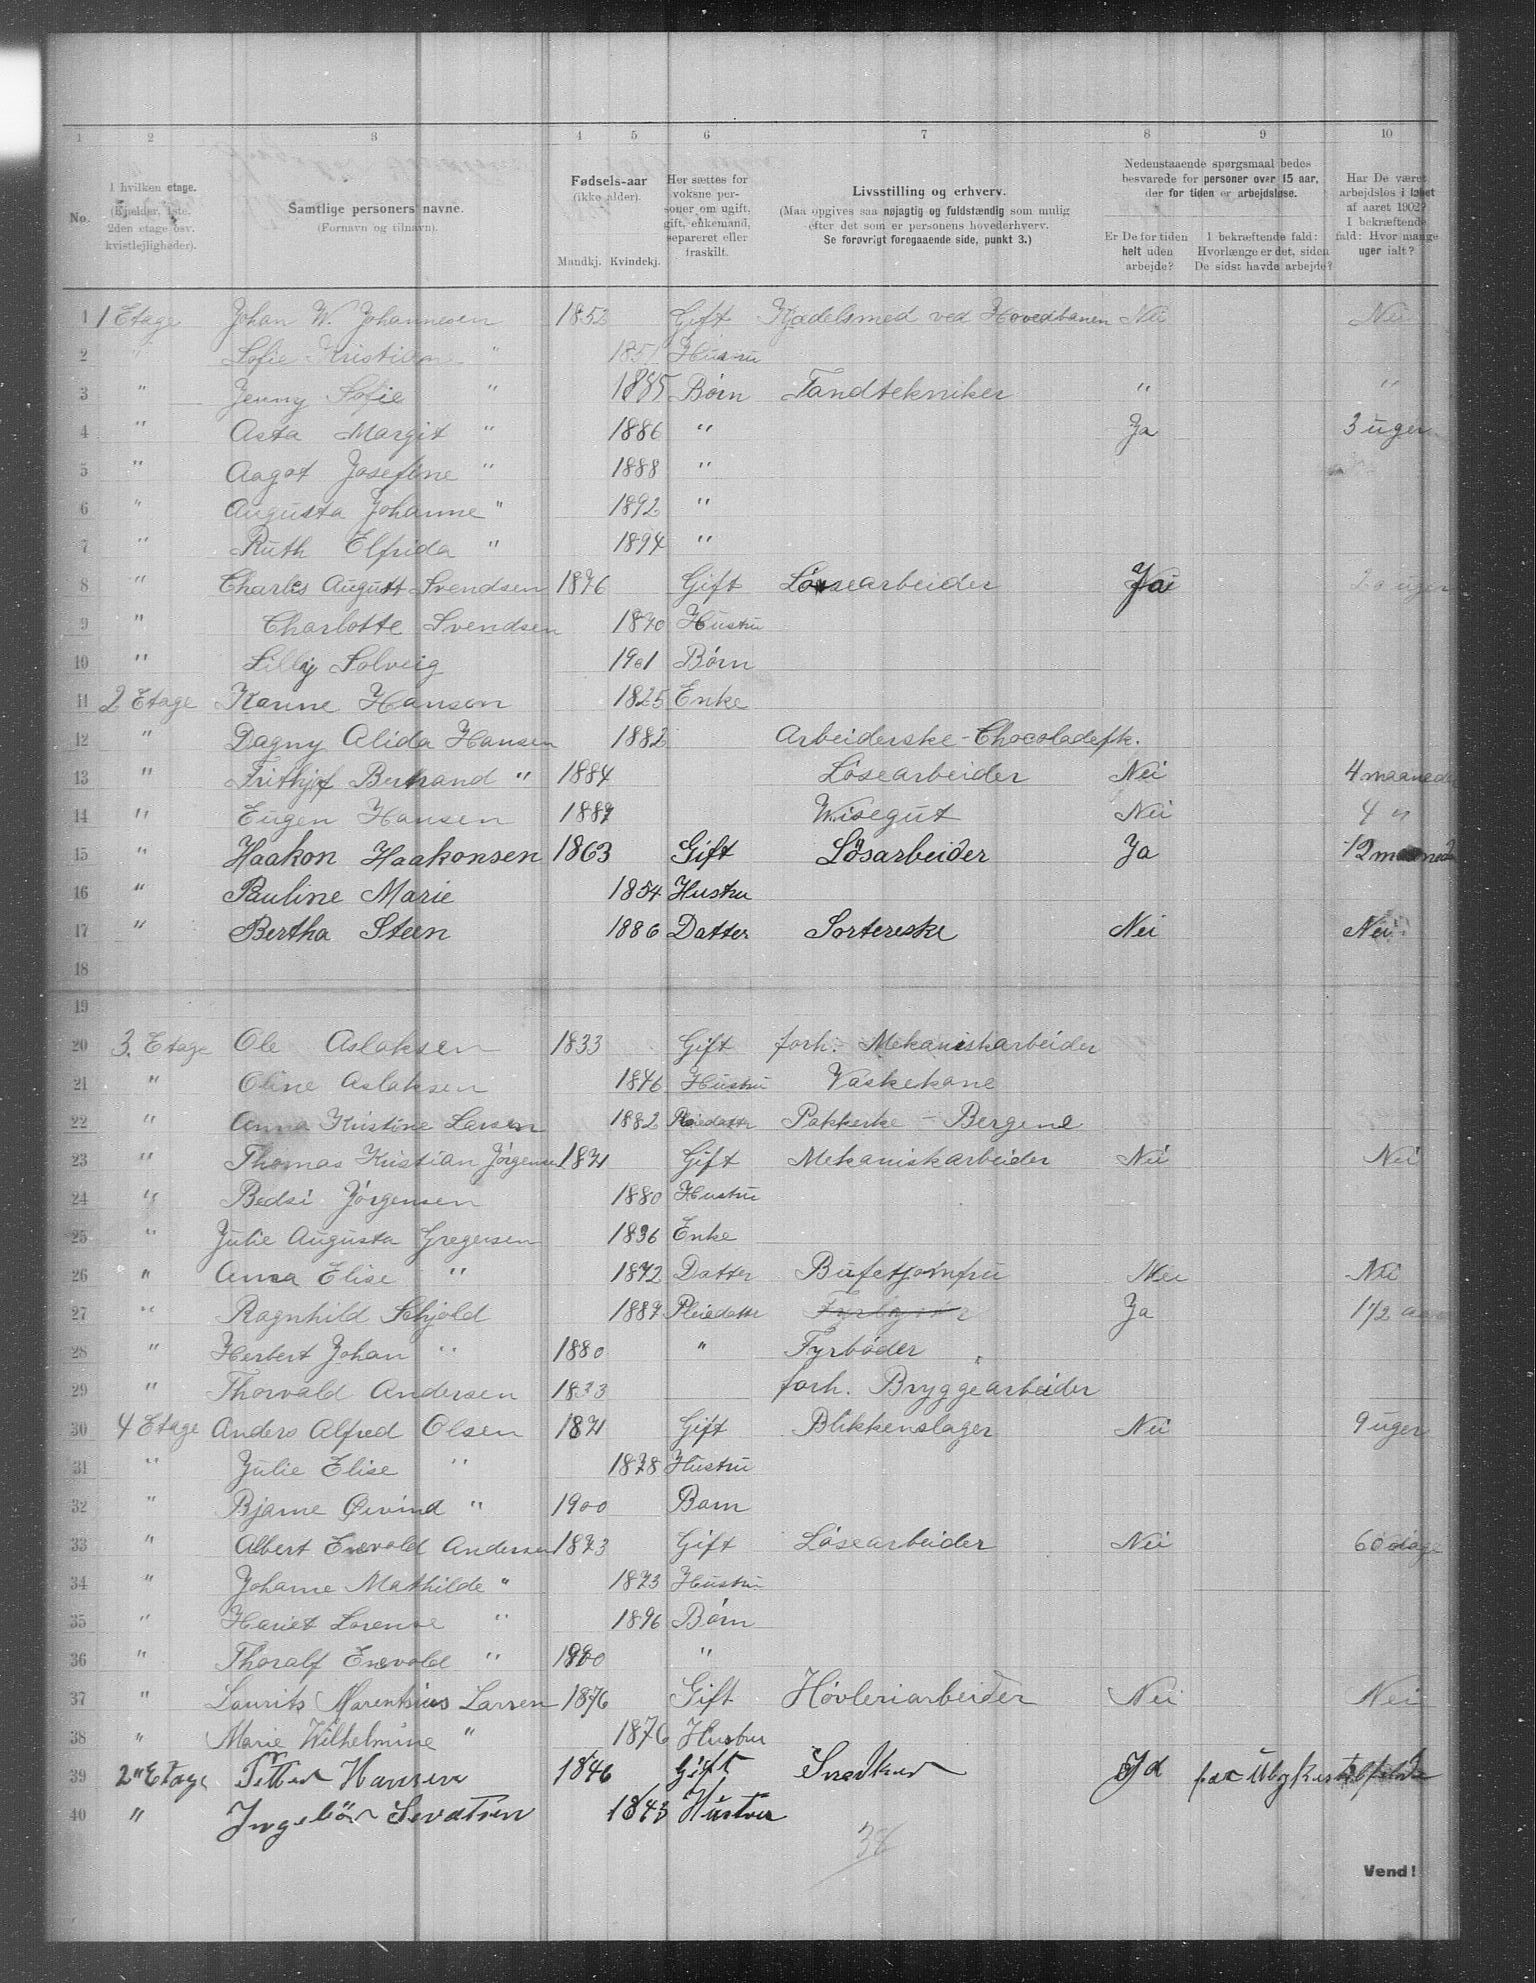 1 2 3 4 5 6 7 8 9 10
No.
I hvilken etage.
(Kjelder, 1ste.
2den etage osv.
kvistlejligheder).
Samtlige personers navne.
(Fornavn og tilnavn).
Fødsels-aar
(ikke alder).
Mandkj. Kvindekj.
Her sættes for
voksne per-
soner om ugift,
gift, enkemand,
separeret eller
fraskilt.
Livsstilling og erhverv.
(Maa opgives saa nøjagtig og fuldstændig som mulig
efter det som er personens hovederhverv.
Se forøvrigt foregaaende side, punkt 3.)
Nedenstaaende spørgsmaal bedes
besvarede for personer over 15 aar,
der for tiden er arbejdsløse.
Er De for tiden
helt uden
arbejde?
I bekræftende fald:
Hvorlænge er det, siden
De sidst havde arbejde?
Har De været
arbejdsløs i løbet
af aaret 1902?
I bekræftende
fald: Hvor mange
uger ialt?
1 1 Etage Johan W. Johannesen 1852 Gift Kjedelsmed ved Hovedbanen Nei Nei
2 " Sofie Kristiane " 1851 Hustru
3 " Jenny Sofie " 1885 Børn Tandtekniker " "
4 " Asta Margit " 1886 " Ja 3 uger
5 " Aagot Josefine " 1888 "
6 " Augusta Johanne " 1892 "
7 " Ruth Elfrida " 1894 "
8 " Charles August Svendsen 1876 Gift Løsearbeider Ja uger
9 " Charlotte Svendsen 1870 Hustru
10 " Lilly Solveig 1901 Børn
11 2 Etage Karine Hansen 1825 Enke
12 " Dagny Alida Hansen 1882 Arbeiderske - Chocoladefk.
13 " Frithjof Bertrand " 1884 Løsearbeider Nei 4 maaneder
14 " Eugen Hansen 1887 Visegut Nei 4 "
15 " Haakon Haakonsen 1863 Gift Løsarbeider Ja 12 maaneder
16 " Pauline Marie 1854 Hustru
17 " Bertha Steen 1886 Datter Sortereske Nei Nei
18
19
20 3. Etage Ole Aslaksen 1833 Gift forh. Mekaniskarbeider
21 " Oline Aslaksen 1846 Hustru Vaskekone
22 " Anna Kristine Larsen 1882 Pleiedatter Pakkerske - Bergene
23 " Thomas Kristian Jørgensen 1871 Gift Mekaniskarbeider Nei Nei
24 " Bedsi Jørgensen 1880 Hustru
25 " Julie Augusta Gregersen 1836 Enke
26 " Anna Elise " 1872 Datter Bufetjomfru Nei Nei
27 " Ragnhild Schjold 1887 Pleiedatter Ja 1 1/2 aar
28 " Herbert Johan " 1880 " Fyrbøder
29 " Thorvald Andersen 1833 forh. Bryggearbeider
30 4 Etage Anders Alfred Olsen 1871 Gift Blikkenslager Nei 9 uger
31 " Julie Elise " 1878 Hustru
32 " Bjarne Øivind " 1900 Barn
33 " Albert Enevold Andersen 1873 Gift Løsearbeider Nei 60 dage
34 " Johanne Mathilde " 1873 Hustru
35 " Hariet Lorense " 1896 Børn
36 " Thoralf Enevold " 1900 "
37 " Laurits Marentsius Larsen 1876 Gift Høvleriarbeider Nei Nei
38 " Marie Wilhelmine " 1876 Hustru
39 2" Etage Petter Hansen 1846 Gift Snedker Ja
40 " Ingebör Sevatsen 1843 Hustru
38
Vend!